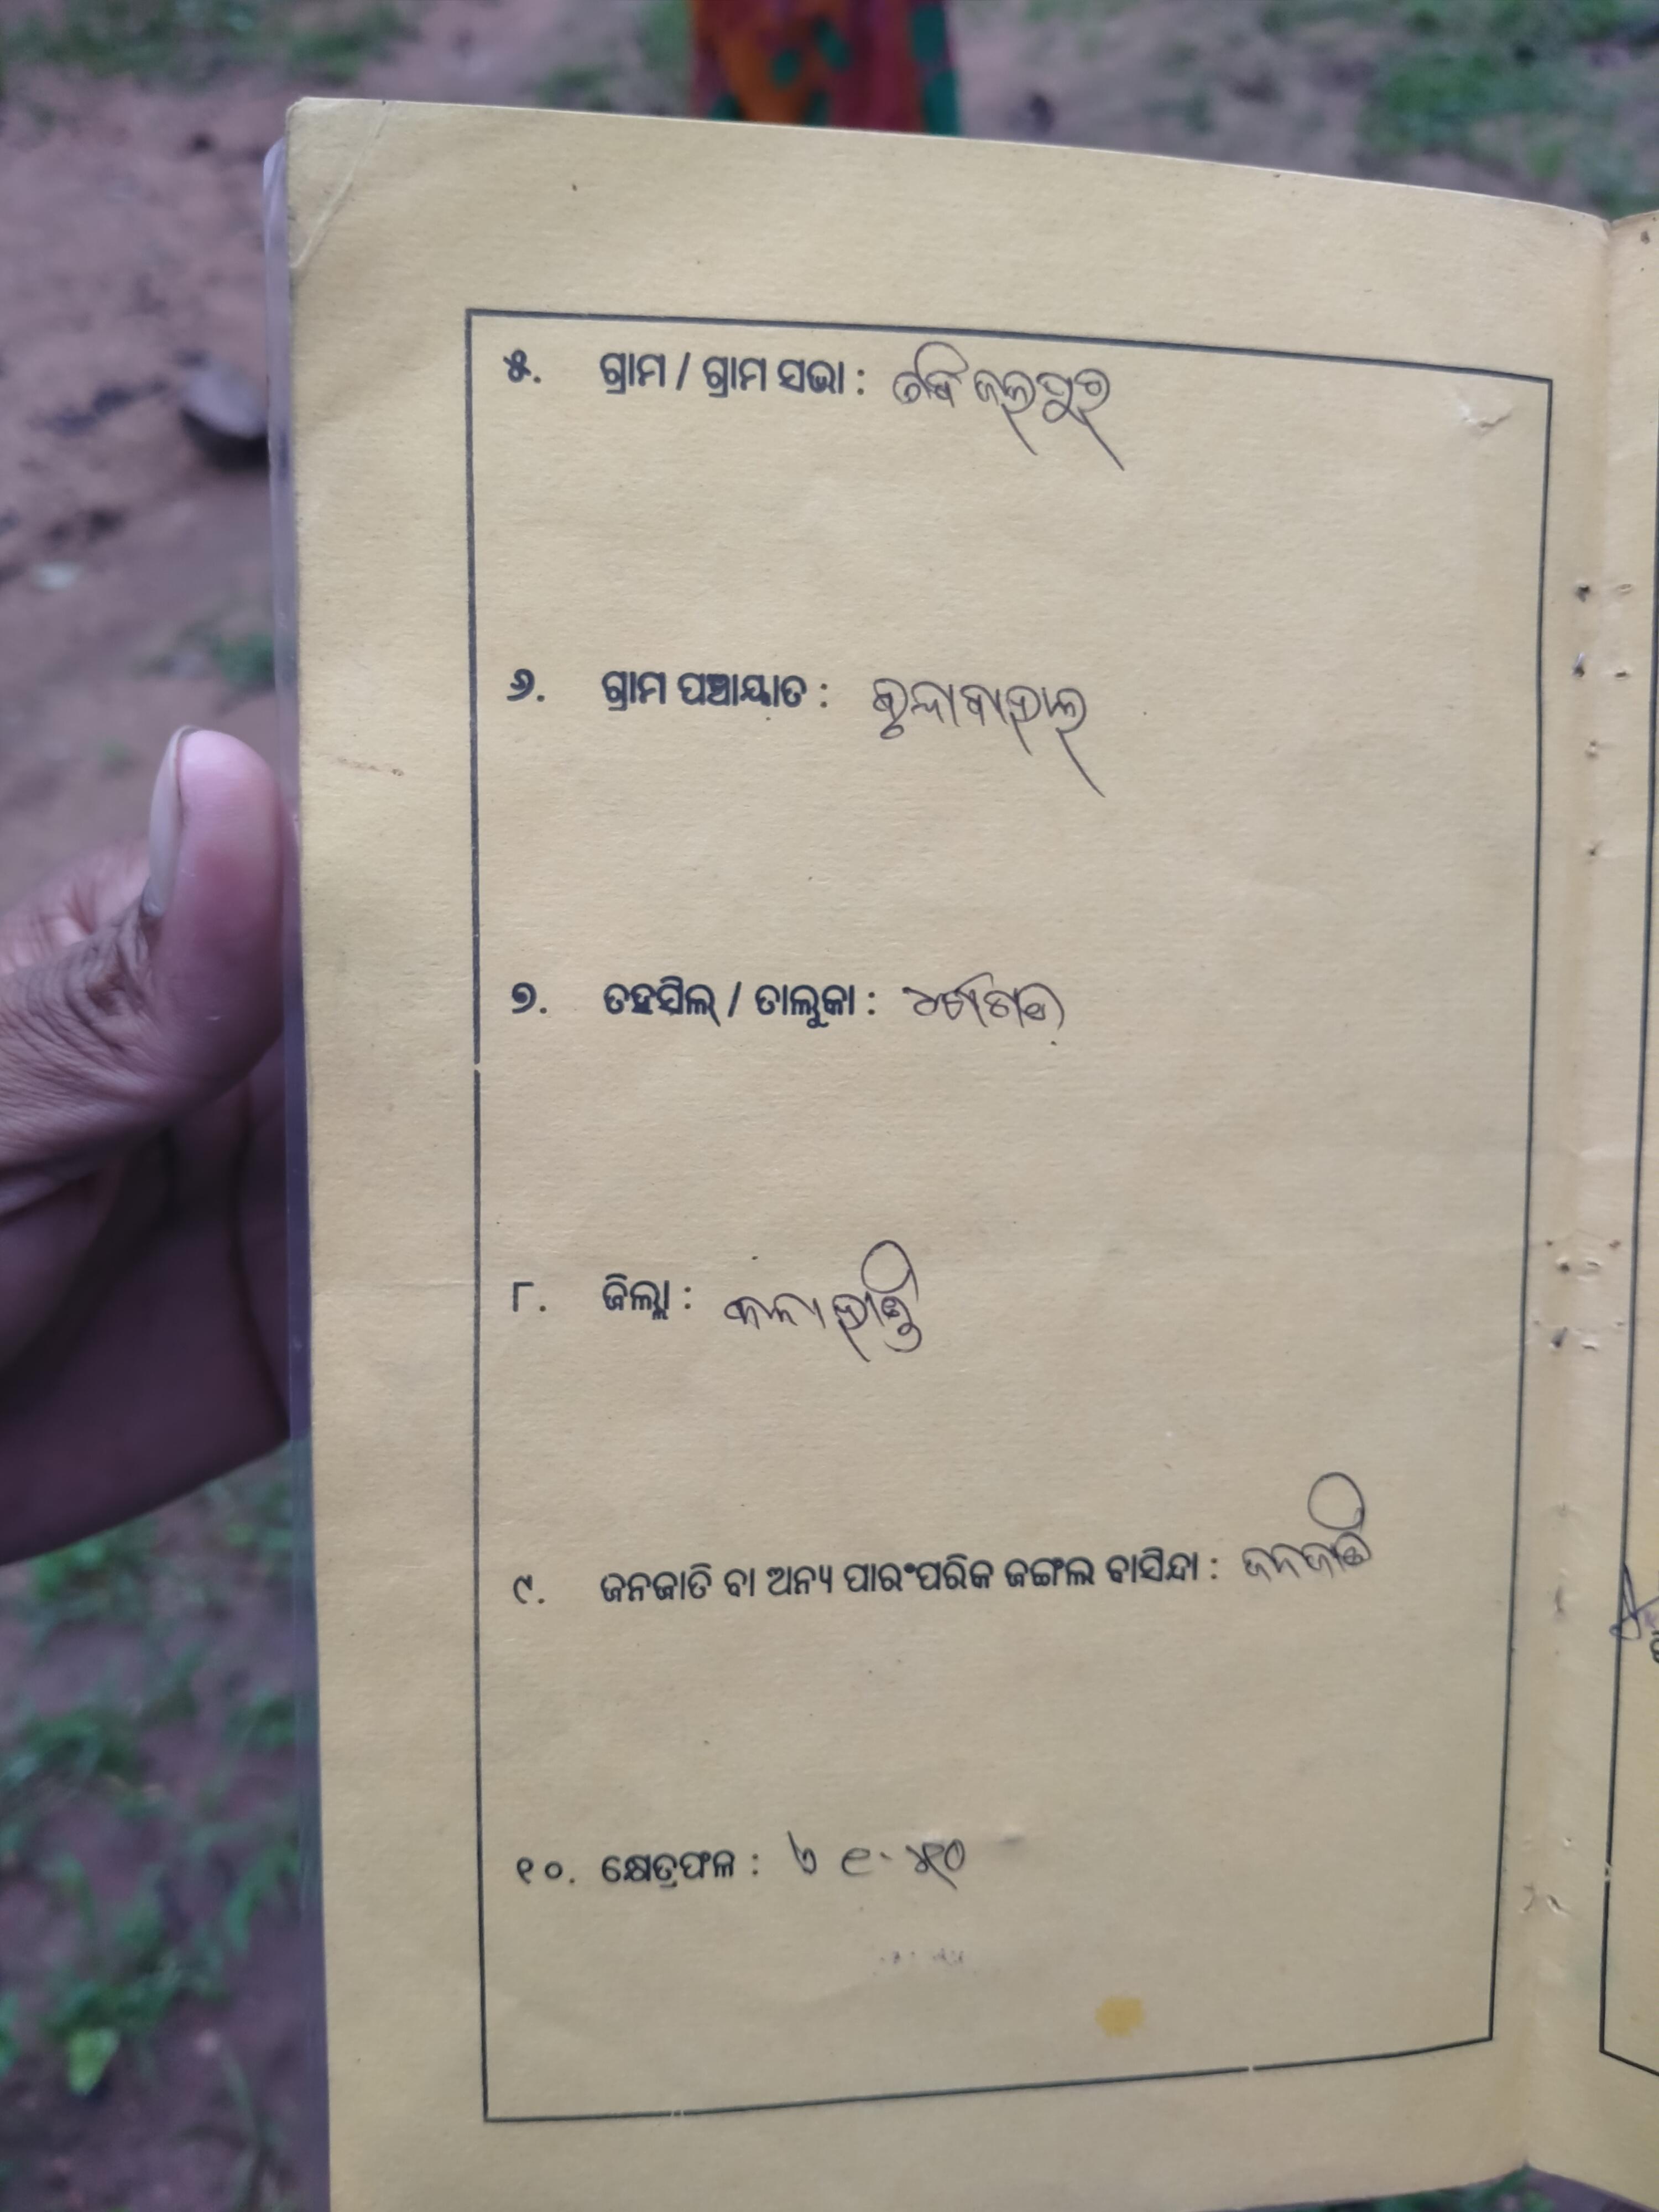 ୫. ଗ୍ରାମ / ଗ୍ରାମ ସଭା :
୬. ଗ୍ରାମ ପଞ୍ଚାୟାତ : ବୃନ୍ଦାବାହାଲ
୭. ତହସିଲ୍ / ତାଲୁକା : ଧର୍ମଗଡ
୮. ଜିଲ୍ଲା : କଳାହାଣ୍ଡି
୯. ଜନଜାତି ବା ଅନ୍ୟ ପାରଂପରିକ ଜଙ୍ଗଲ ବାସିନ୍ଦା : ଜନଜାତି
୧୦. କ୍ଷେତ୍ରଫଳ :